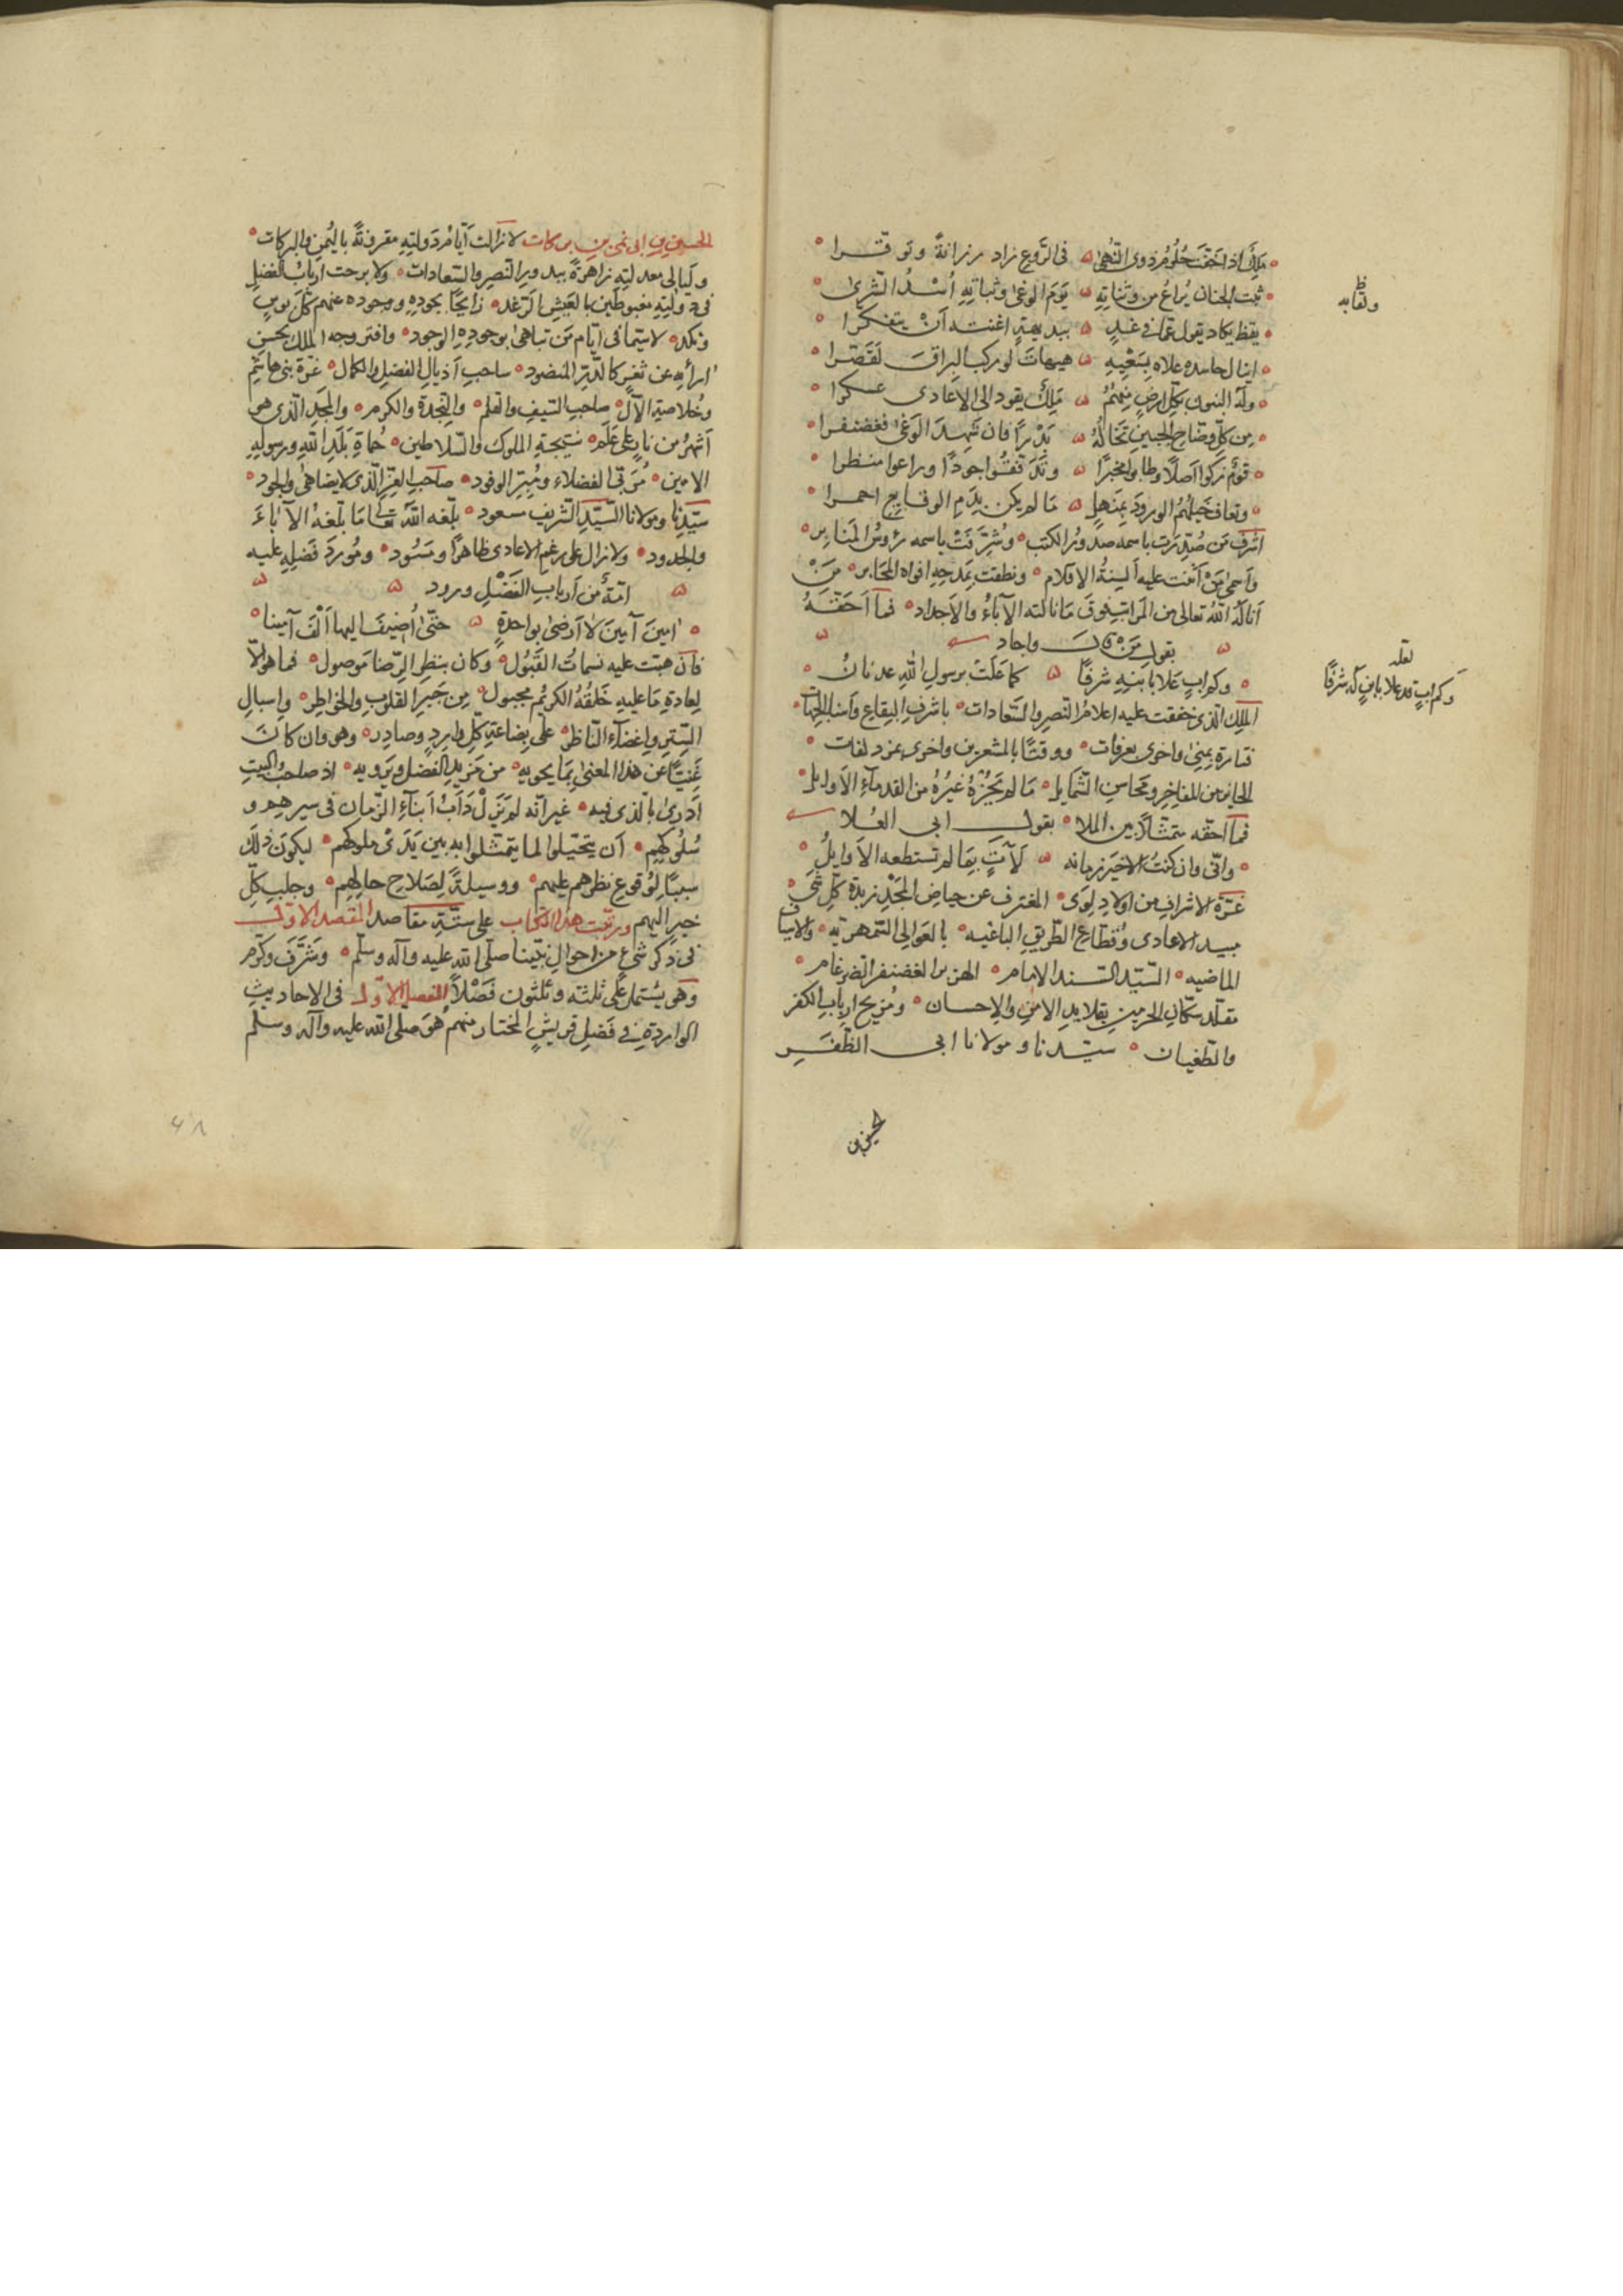 ملك اذا خفت حلوم ذوى النهى ۵ فى الروع زاد رزانة وتوقرا
ثبت الجنان يراع من وثباته ۵ يوم الوغى وثباته أسد الشرى
يقظ يكاد يقول عما فى غد ۵ ببديهة اغنته أن يتفكرا
اينال حاسده علاه بسعيه ۵ هيهات لو ركب البراق لقصرا
وله البنون بكل ارض منهم ۵ ملك يقود الى الاعادى عسكرا
من كل وضاح الجبين تخاله ۵ بدرا فان شهد الوغى فغضنفرا
قوم زكوا اصلا وطابوا مخبرا ۵ وتدفقوا جودا وراعوا منظرا
وتعاف خيلهم الورود بمنهل ۵ ما لم يكن بدم الوقايع احمرا
اشرف من صدرت باسمه صدور الكتب وشرفت باسمه رؤس المنابر
واسمى من اثنت عليه ألسنة الاقلام ونطقت بمدحه افواه المحابر من
أناله الله تعالى من المراتب فوق ما نالته الآباء والاجداد فما أحقه
بقول من قال واجاد
وكم اب علا بابنه شرفا ۵ كما علت برسول الله عدنان
الملك الذى خفقت عليه اعلام النصر والسعادات باشرف البقاع وأسنا الجهات
فتارة بمنى واخرى بعرفات ووقتا بالمشعرين واخرى بمزدلفات
الحايز من المفاخر ومحاسن الشمايل ما لم يحزه غيره من القدماء الأوايل
فما احقه متمثلا بين الملا بقول ابى العلا
وانى وان كنت الاخير زمانه ۵ لآت بما لم تستطعه الاوايل
غرة الاشراف من اولاد لوى المغترف من حياض المجد زبدة كل شى
مبيد الاعادى وقطاع الطريق الباغيه بالعوالى السمهريه والاسياف
الماضيه السيد السند الامام الهزبر الغضنفر الضرغام
مقلد سكان الحرمين بقلايد الامن والاحسان ومزيح ارباب الكفر
والطغيان سيدنا ومولانا ابى الظفر
الحسين بن
ظ
ولقابه
لعله
وكم اب قد علا بابن له شرفا
الحسين بن ابى نمى بن بركات لا زالت أيام دولته مقرونة باليمن والبركات
وليالى معدلته زاهرة ببدور النصر والسعادات ولا برحت ارباب الفضل
فى دولته مغبوطين بالعيش الرغد زايحا بجوده ووجوده عنهم كل بوس
ونكد لا سيما فى ايام من تباهى بوجوده الوجود وافتر وجه الملك بحسن
ارائه عن ثغر كالدر المنضود ساحب أذيال الفضل والكمال غرة بنى هاشم
وخلاصة الآل صاحب السيف والقلم والنجدة والكرم والمجد الذى هو
أشهر من نار على علم نتيجة الملوك والسلاطين حماة بلد الله ورسوله
الامين مربى الفضلاء ومبر الوفود صاحب العز الذى لا يضاهى والجود
سيدنا ومولانا السيد الشريف سعود بلغه الله تعالى ما بلغه الآباء
والجدود ولا زال على رغم الاعادى ظاهرا ومسود ومورد فضله عليه
امة من أرباب الفضل ورود
امين آمين لا أرضى بواحدة ۵ حتى أضيف اليها ألف آمينا
فان هبت عليه نسمات القبول وكان بنظر الرضا موصول فما هو الا
لعادة ما عليه خلقه الكريم مجبول من جبر القلوب والخواطر واسبال
الستر واغضاء الناظر على بضاعة كل وارد وصادر وهو وان كان
غنيا عن هذا المعنى بما يحويه من مزيد الفضل ويرويه اذ صاحب البيت
أدرى بالذى فيه غير انه لم يزل دأب أبناء الزمان فى سيرهم و
سلوكهم أن يتحيلوا لما يتمثلوا به بين يدى ملوكهم ليكون ذلك
سببا لوقوع نظرهم عليهم ووسيلة لصلاح حالهم وجلب كل
خير اليهم ورتبت هذا الكتاب على ستة مقاصد المقصد الاول
فى ذكر شئ من احوال نبينا صلى الله عليه وآله وسلم وشرف وكرم
وهو يشتمل على ثلثة وثلثون فصلا الفصل الاول فى الاحاديث
الواردة فى فضل قريش المختار منهم هو صلى الله عليه وآله وسلم